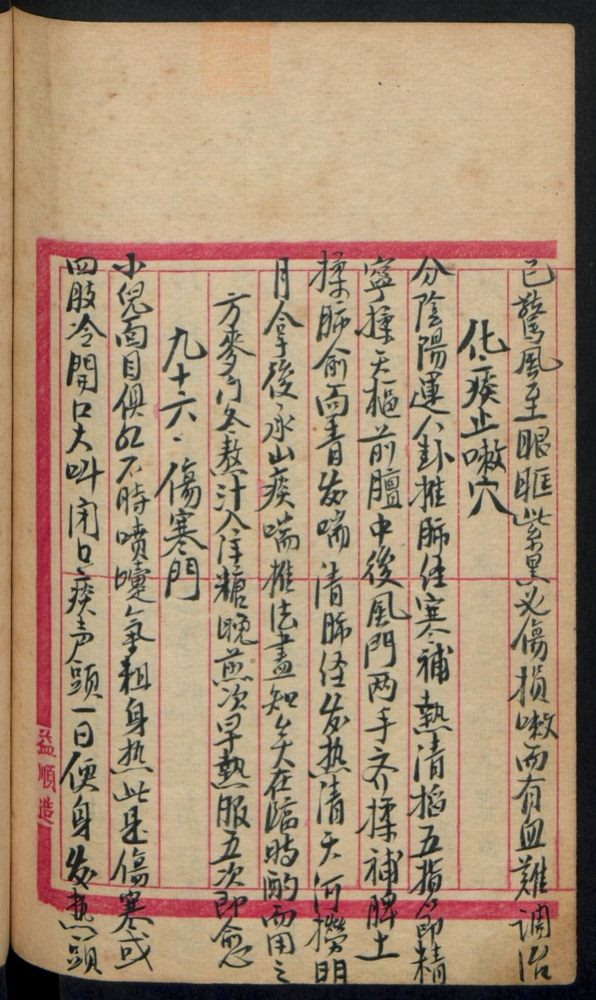 已驚風至眼眶紫黑必傷損嗽而有血難調治
化痰止嗽穴
分陰陽運八卦推肺俓寒補熱清掐五指節精
寧揉天樞前膻中後風門两手齐揉補脾土
揉肺俞面青发喘清肺俓发热清天河撈明
月拿後承山痰喘推法盡知矣在臨時酌而用之
方麥门冬熬汁入洋糖晚煎次早熱服五次即愈
九十六·傷寒門
小兒面目俱红不時噴嚏氣粗身热此是傷寒或
四肢冷開口大叫闭口痰声頭一日便身发热頭
益順造